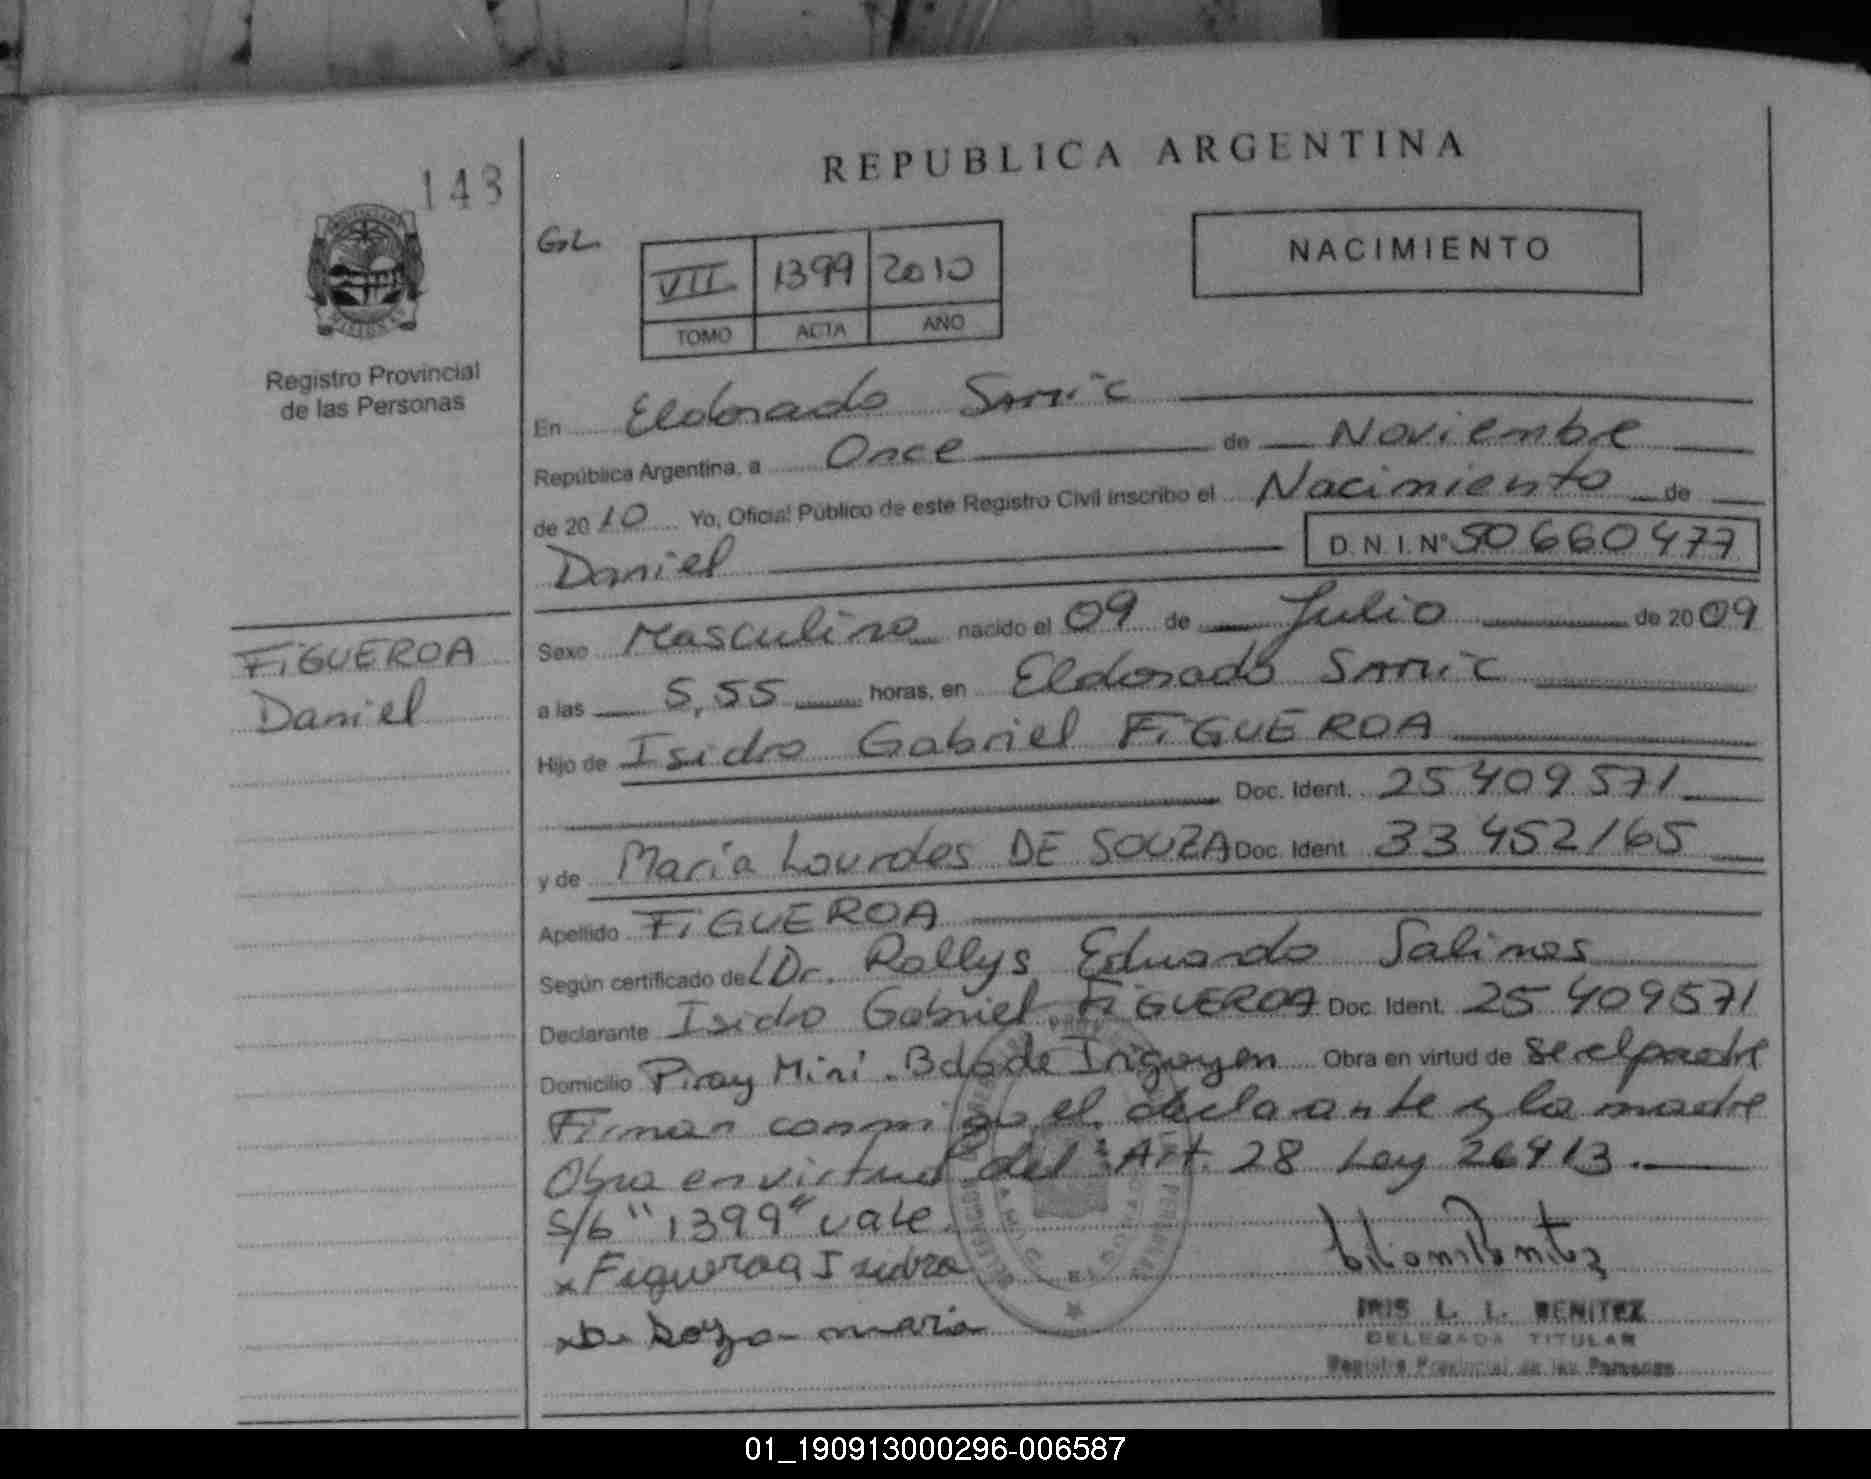 REPUBLICA ARGENTINA
143
GL
NACIMIENTO
VII 1399 2010
TOMO ACTA AÑO
Registro Provincial
de las Personas
En Eldorado Samic
República Argentina, a Once de Noviembre
de 2010 Yo, Oficial Público de este Registro Civil inscribo el Nacimiento de
Daniel
D.N.I.Nº 50660477
FiGUEROA
Daniel
Sexo Masculino nacido el 09 de Julio de 2009
a las 5,55 horas, en Eldorado Samic
Hijo de Isidro Gabriel FiGUEROA
Doc. Ident. 25409571
y de Maria Lourdes DE SOUZA Doc. Ident 33452165
Apellido FiGUEROA
Según certificado del Dr. Rollys Eduardo Salinas
Declarante Isidro Gabriel FiGUEROA Doc. Ident. 25409571
Domicilio Piray Mini. Bdo de Irigoyen Obra en virtud de ser el padre
Firman conmigo el declaante y la madre
Obra en virtud del Art. 28 Ley 26413.
S/b "1399" vale.
x Figueroa Isidro
x De Soza maria
IRIS L. L. BENITEZ
DELEGADA TITULAR
Registro Provincial de las Personas
01_190913000296-006587